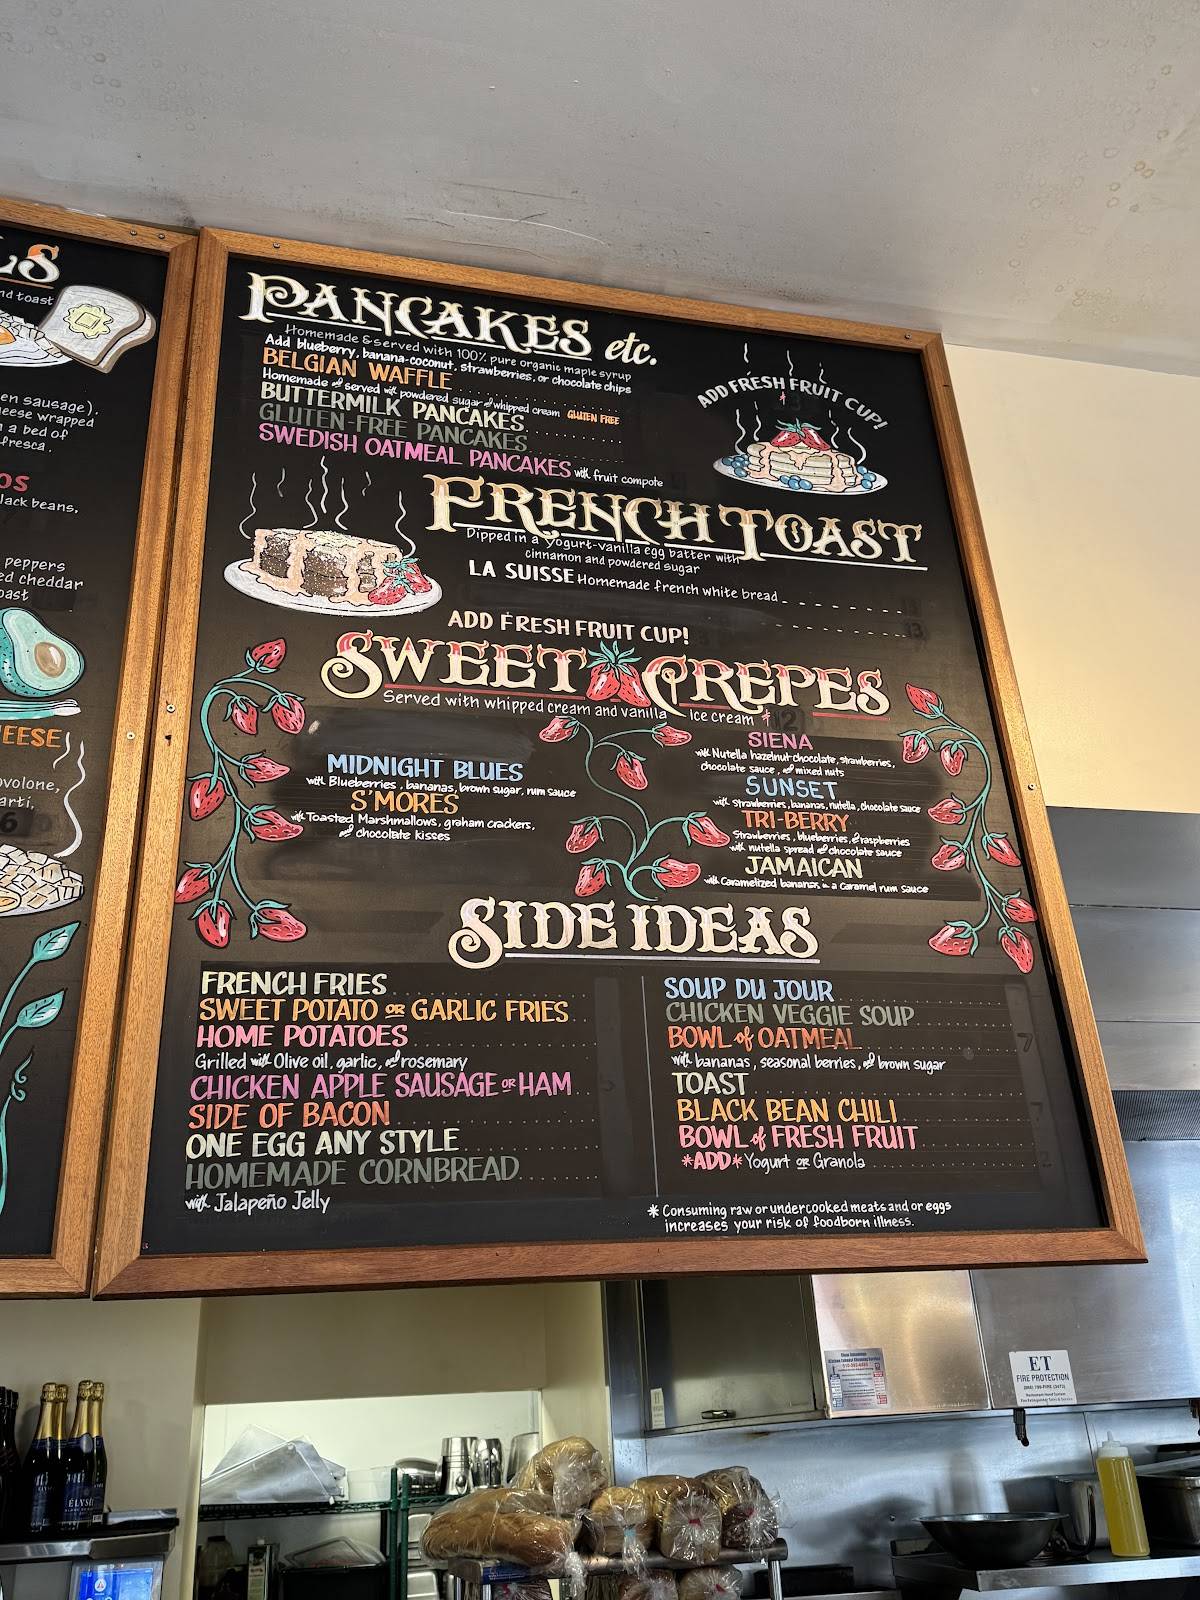 LS
nd toast
en sausage).
eese wrapped
a bed of
fresca.
OS
lack beans,
peppers
ed cheddar
oast
EESE
ovolone,
arti,
6
PANCAKES etc.
Homemade & served with 100% pure organic maple syrup
Add blueberry, banana-coconut, strawberries, or chocolate chips
BELGIAN WAFFLE
Homemade & served with powdered sugar & whipped cream GLUTEN FREE
BUTTERMILK PANCAKES
GLUTEN-FREE PANCAKES
SWEDISH OATMEAL PANCAKES with fruit compote
ADD FRESH FRUIT CUP!
FRENCH TOAST
Dipped in a yogurt-vanilla egg batter with
cinnamon and powdered sugar
LA SUISSE Homemade french white bread
13
ADD FRESH FRUIT CUP!
SWEET CREPES
Served with whipped cream and vanilla Ice cream
MIDNIGHT BLUES
with Blueberries, bananas, brown sugar, rum sauce
S'MORES
with Toasted Marshmallows, graham crackers,
and chocolate kisses
SIENA
with Nutella hazelnut chocolate, strawberries,
chocolate sauce, and mixed nuts
SUNSET
with strawberries, bananas, nutella, chocolate sauce
TRI-BERRY
Strawberries, blueberries, & raspberries
with nutella spread & chocolate sauce
JAMAICAN
with Caramelized bananas in a Caramel rum sauce
SIDE IDEAS
FRENCH FRIES
SWEET POTATO OR GARLIC FRIES
HOME POTATOES
Grilled with Olive oil, garlic, and rosemary
CHICKEN APPLE SAUSAGE OR HAM
SIDE OF BACON
ONE EGG ANY STYLE
HOMEMADE CORNBREAD
with Jalapeño Jelly
SOUP DU JOUR
CHICKEN VEGGIE SOUP
BOWL of OATMEAL
with bananas, seasonal berries, and brown sugar
TOAST
BLACK BEAN CHILI
BOWL of FRESH FRUIT
*ADD* Yogurt OR Granola
* Consuming raw or undercooked meats and or eggs
increases your risk of foodborn illness.
ET
FIRE PROTECTION
ÉLYSÉ